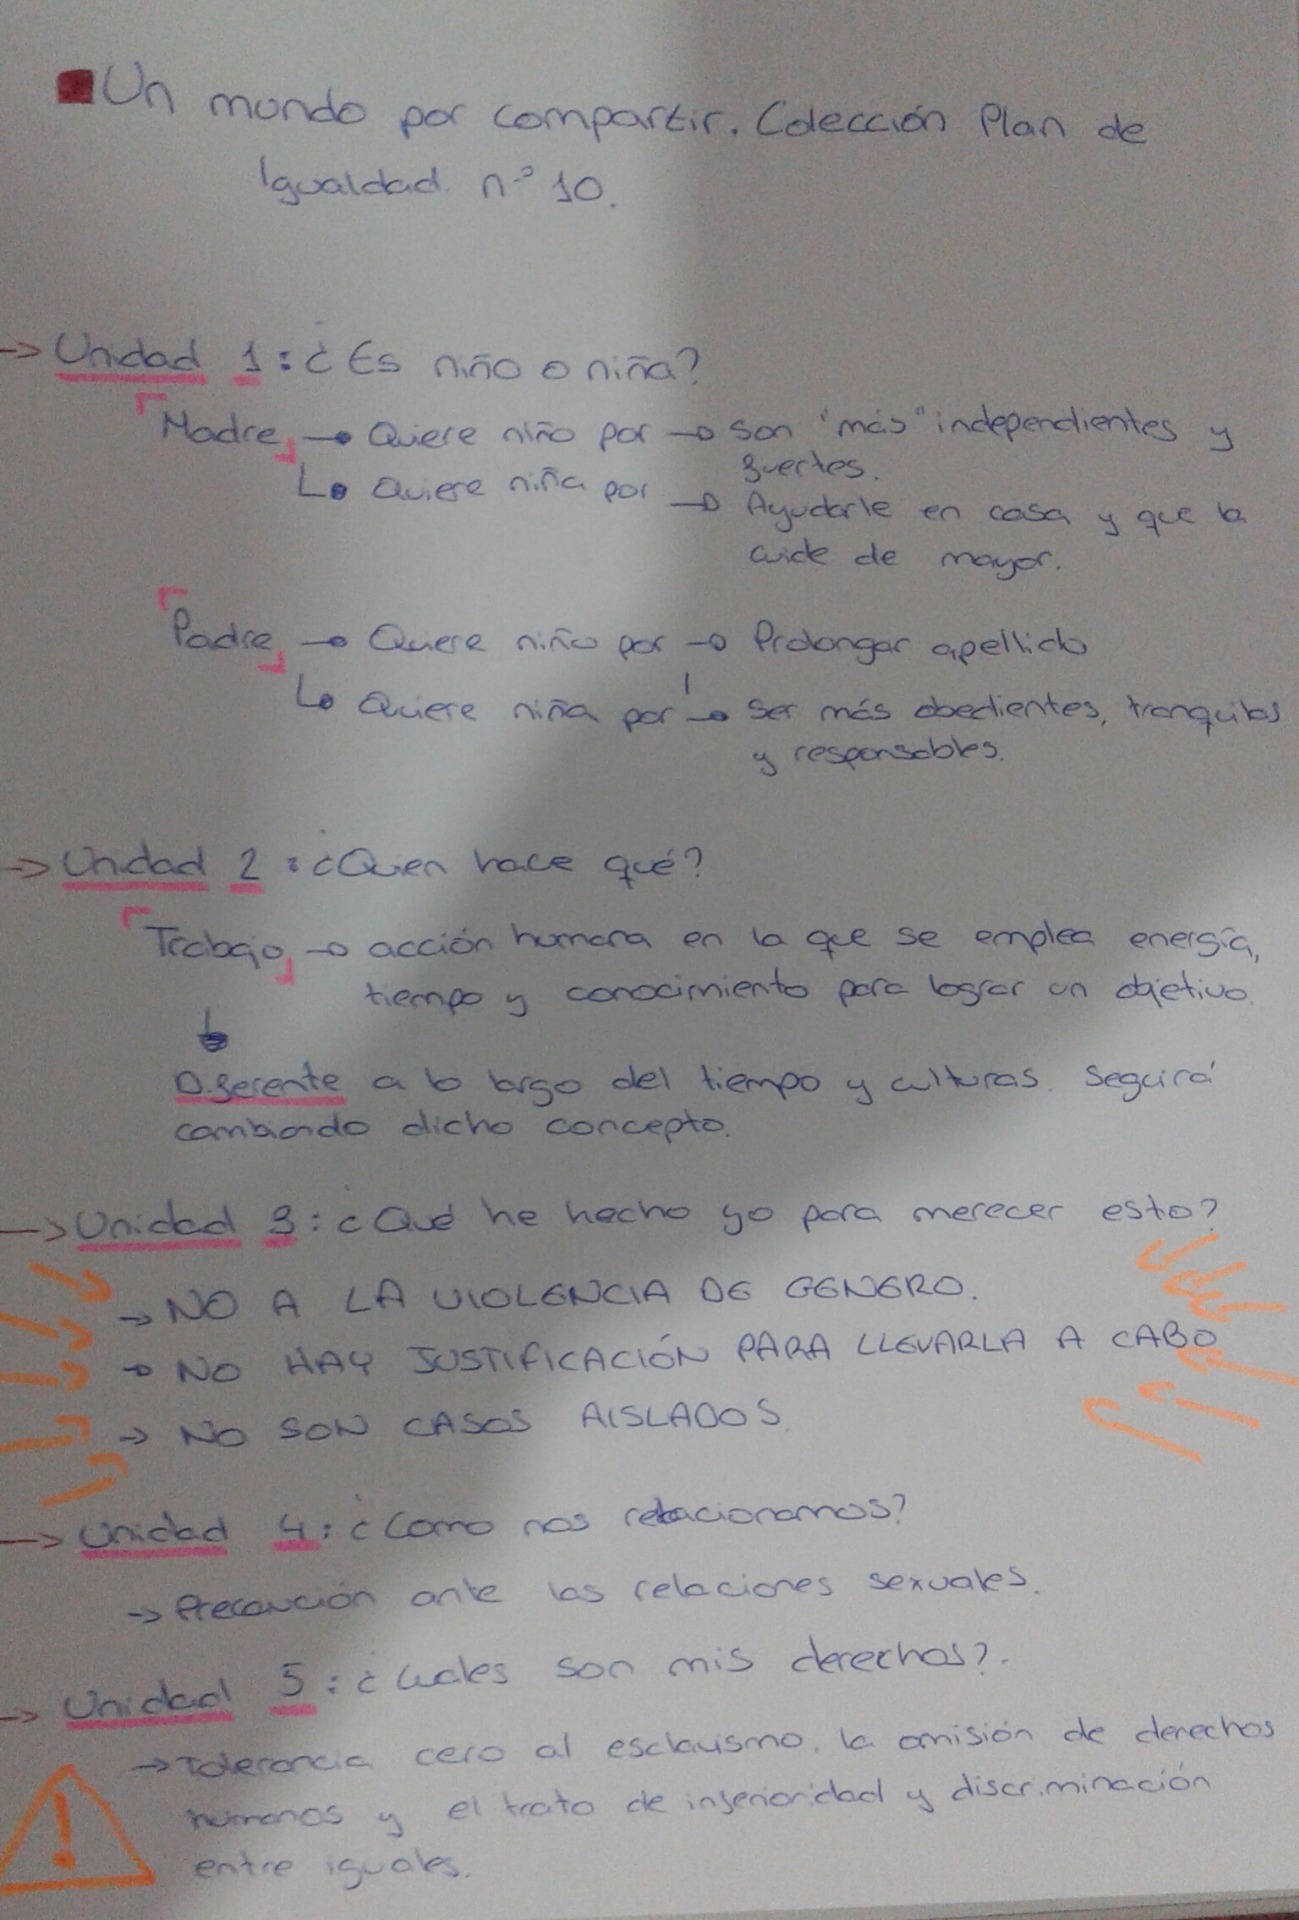 Un mundo por compartir. Colección Plan de
Igualdad. nº 10.
→ Unidad 1: ¿Es niño o niña?
Madre → Quiere niño por → son "más" independientes y
fuertes.
↳ Quiere niña por → Ayudarle en casa y que la
cuide de mayor.
Padre → Quiere niño por → Prolongar apellido
↳ Quiere niña por → Ser más obedientes, tranquilas
y responsables.
→ Unidad 2: ¿Quien hace qué?
Trabajo → acción humana en la que se emplea energía,
tiempo y conocimiento para lograr un objetivo.
↓
Diferente a lo largo del tiempo y culturas. Seguirá
cambiando dicho concepto.
→ Unidad 3: ¿Qué he hecho yo para merecer esto?
→ NO A LA VIOLENCIA DE GENERO.
→ NO HAY JUSTIFICACIÓN PARA LLEVARLA A CABO
→ NO SON CASOS AISLADOS.
→ Unidad 4: ¿Como nos relacionamos?
→ Precaución ante las relaciones sexuales.
→ Unidad 5: ¿Cuales son mis derechos?.
→ Tolerancia cero al esclavismo, la omisión de derechos
humanos y el trato de inferioridad y discriminación
entre iguales.
!